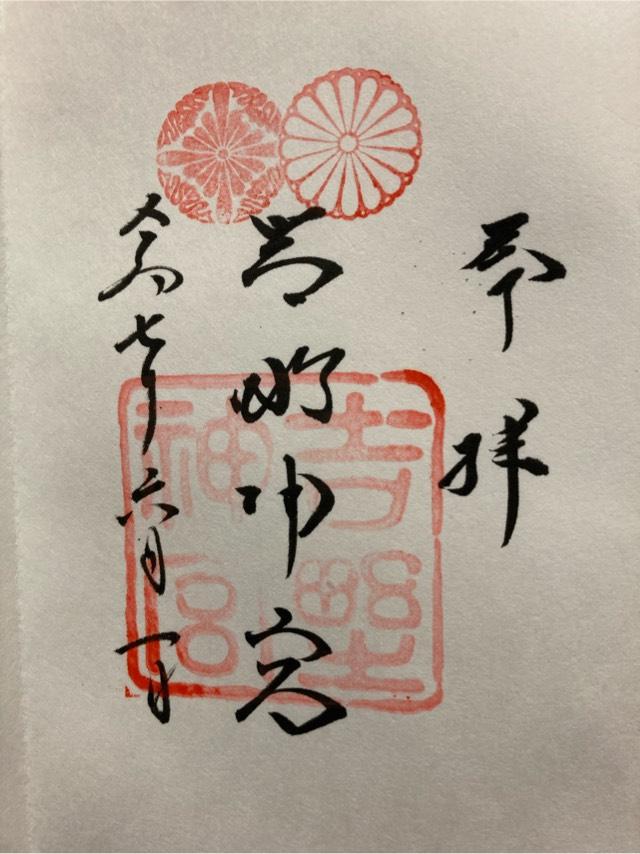 奉拝
吉野神宮
令和七年六月一日
吉野神宮